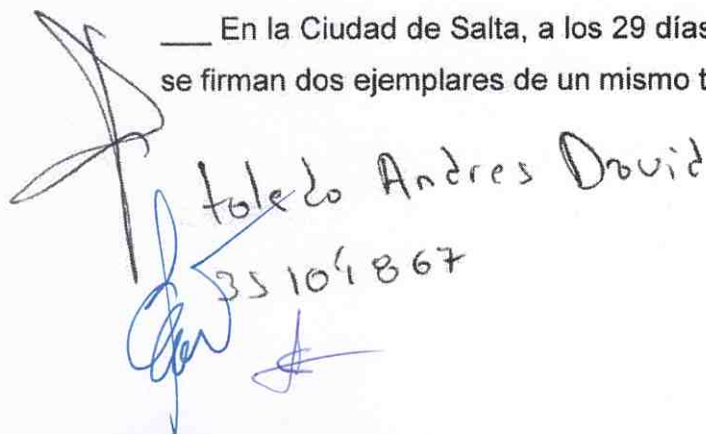 ___ En la Ciudad de Salta, a los 29 días
se firman dos ejemplares de un mismo t
toledo Andres David
35104867